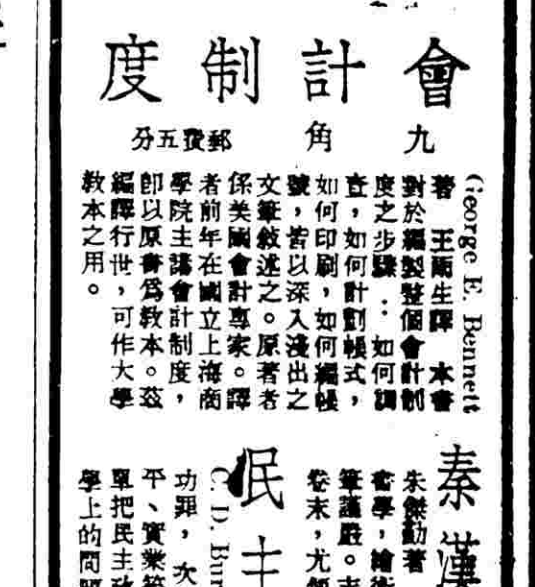 會計制度
九角
郵費五分
George E. Bennett
著 王雨生譯 本書
對於編製整個會計制
度之步驟：如何調
查，如何計劃帳式，
如何印刷，如何編帳
號，皆以深入淺出之
文筆敘述之。原著者
係美國會計專家。譯
者前年在國立上海商
學院主講會計制度，
卽以原書爲敎本。茲
編譯行世，可作大學
敎本之用。
秦漢
朱傑勤著
卷末，尤
民主
C. D. Bur
功罪，次
平、實業
單把民主政
學上的問